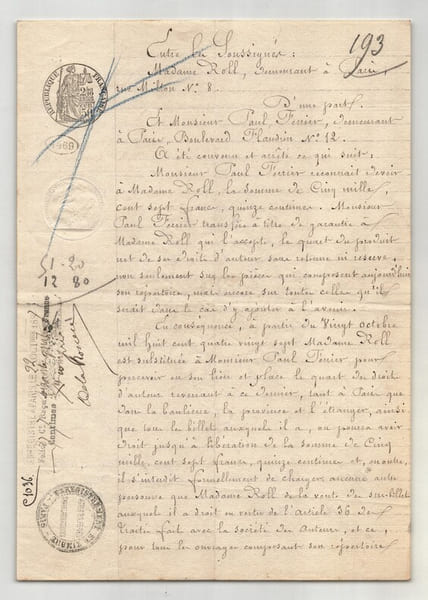 193
Entre les Soussignés :
Madame Roll, demeurant à Paris,
rue Milton N° 8.
D'une part.
Et Monsieur Paul Ferrier, demeurant
à Paris, Boulevard Flandrin N° 12.
A été convenu et arrêté ce qui suit :
Monsieur Paul Ferrier reconnaît devoir
à Madame Roll, la somme de Cinq mille,
cent sept francs, quinze centimes. Monsieur
Paul Ferrier transfère à titre de garantie à
Madame Roll qui l'accepte, le quart du produit
net de ses droits d'auteur sans retenue ni réserve,
non seulement sur les pièces qui composent aujourd'hui
son répertoire, mais encore sur toutes celles qu'il
serait dans le cas d'y ajouter à l'avenir.
En conséquence, à partir du Vingt octobre
mil huit cent quatre vingt sept Madame Roll
est substituée à Monsieur Paul Ferrier pour
percevoir en son lieu et place le quart des droits
d'auteur revenant à ce dernier, tant à Paris que
dans la banlieue, la province et l'étranger, ainsi
que tous les billets auxquels il a, ou pourra avoir
droit jusqu'à libération de la somme de Cinq
mille, cent sept francs, quinze centimes et, en outre,
il s'interdit formellement de charger aucune autre
personne que Madame Roll de la vente de ses billets
auxquels il a droit en vertu de l'article 36 du
Traité fait avec la société des Auteurs, et ce,
pour tous les ouvrages composant son répertoire
RÉPUBLIQUE FRANÇAISE
51-20
12 80
ENREGISTREMENT ET TIMBRE